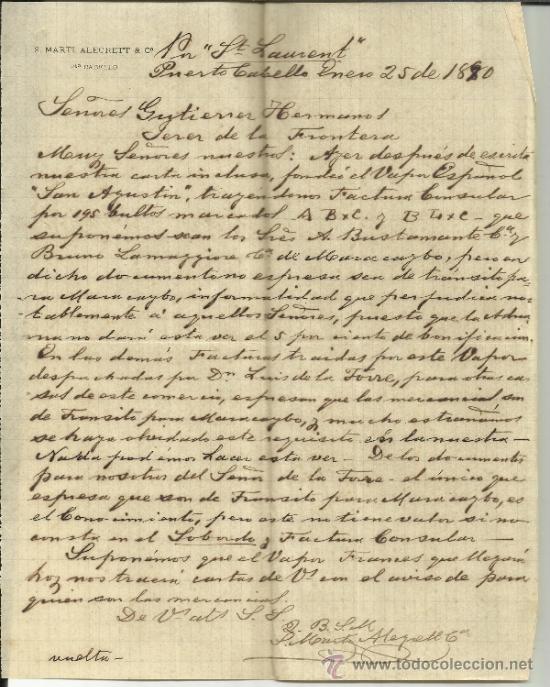 S. MARTI ALEGRETT & Co
PTO CABELLO
Por "St. Laurent"
Puerto Cabello Enero 25 de 1890
Señores Gutierrez Hermanos
Jerez de la Frontera
Muy Señores nuestros: Ayer después de escrita
nuestra carta inclusa, fondeó el Vapor Español
"San Agustin", trayendonos Factura Consular
por 195 bultos marcados A B x C. y B L x C - que
suponémos sean los Sres A. Bustamante Ca. y
Bruno Lamaggiore Ca. de Maracaybo, pero en
dicho documento no espresa sea de tránsito pa-
ra Maracaybo, informalidad que perjudica no-
tablemente á aquellos Señores, puesto que la Adua-
na no dará esta vez el 5 por ciento de bonificacion.
En las demás Facturas traidas por este Vapor
despachadas por Dn Luis de la Torre, para otras ca-
sas de este comercio, espresan que las mercancias son
de Transito para Maracaybo, y mucho estrañamos
se haya olvidado este requisito en la nuestra -
Nada podémos hacer esta vez - De los documentos
para nosotros del Señor de la Torre - el único que
espresa que son de Transito para Maracaybo, es
el Conocimiento, pero este no tiene valor si no
consta en el Sobordo y Factura Consular -
Suponémos que el Vapor Frances que llegará
hoy nos traerá cartas de Vs con el aviso de para
quien son las mercancias.
De Vs atts S. S.
Q. B. S. M.
S. Marti Alegrett Ca
vuelta -
www.todocoleccion.net